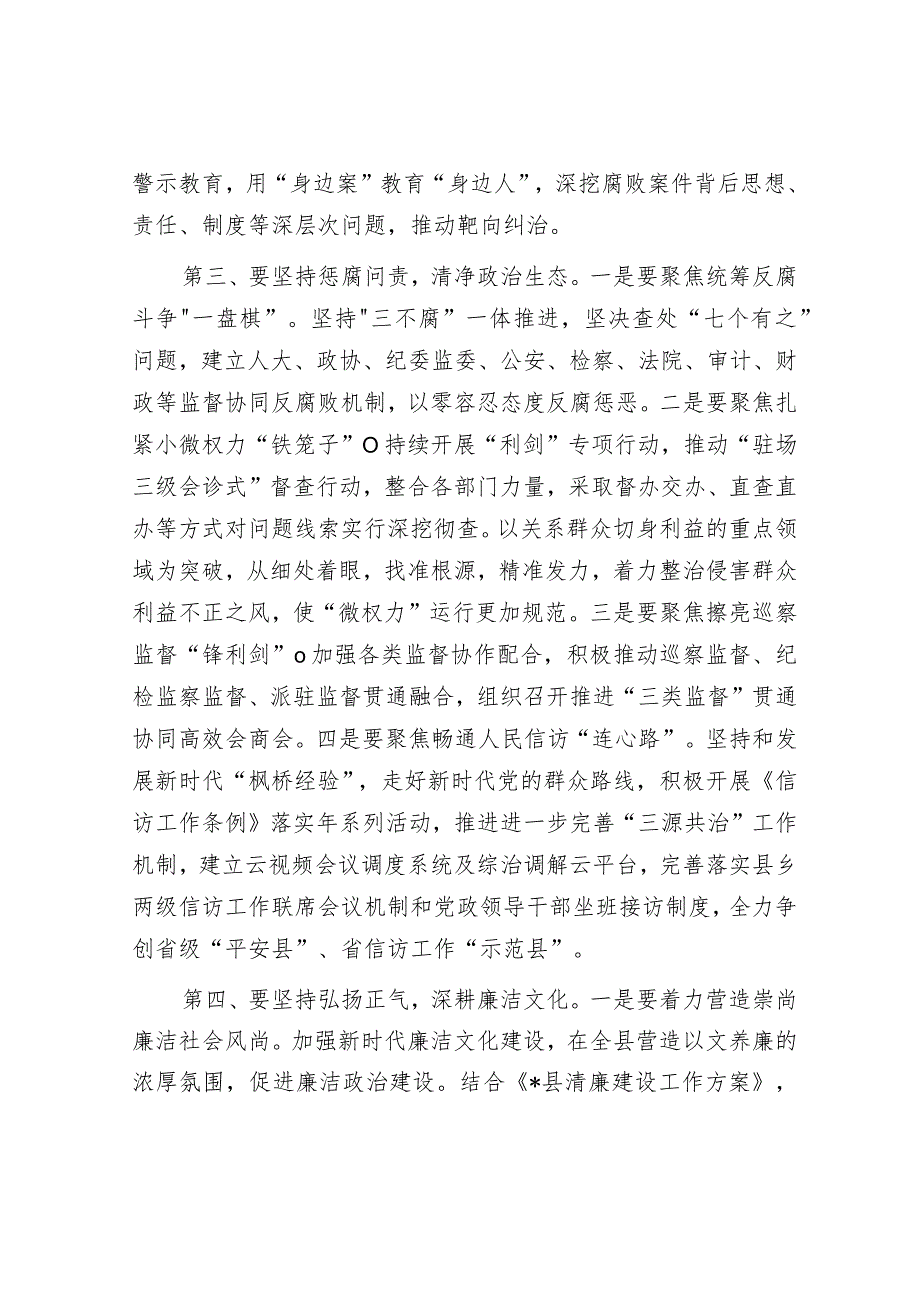 警示教育，用“身边案”教育“身边人”，深挖腐败案件背后思想、
责任、制度等深层次问题，推动靶向纠治。
第三、要坚持惩腐问责，清净政治生态。一是要聚焦统筹反腐
斗争"一盘棋”。坚持"三不腐”一体推进，坚决查处“七个有之”
问题，建立人大、政协、纪委监委、公安、检察、法院、审计、财
政等监督协同反腐败机制，以零容忍态度反腐惩恶。二是要聚焦扎
紧小微权力“铁笼子”O持续开展“利剑”专项行动，推动“驻场
三级会诊式”督查行动，整合各部门力量，采取督办交办、直查直
办等方式对问题线索实行深挖彻查。以关系群众切身利益的重点领
域为突破，从细处着眼，找准根源，精准发力，着力整治侵害群众
利益不正之风，使“微权力”运行更加规范。三是要聚焦擦亮巡察
监督“锋利剑”o加强各类监督协作配合，积极推动巡察监督、纪
检监察监督、派驻监督贯通融合，组织召开推进“三类监督”贯通
协同高效会商会。四是要聚焦畅通人民信访“连心路”。坚持和发
展新时代“枫桥经验”，走好新时代党的群众路线，积极开展《信
访工作条例》落实年系列活动，推进进一步完善“三源共治”工作
机制，建立云视频会议调度系统及综治调解云平台，完善落实县乡
两级信访工作联席会议机制和党政领导干部坐班接访制度，全力争
创省级“平安县”、省信访工作“示范县”。
第四、要坚持弘扬正气，深耕廉洁文化。一是要着力营造崇尚
廉洁社会风尚。加强新时代廉洁文化建设，在全县营造以文养廉的
浓厚氛围，促进廉洁政治建设。结合《*县清廉建设工作方案》，